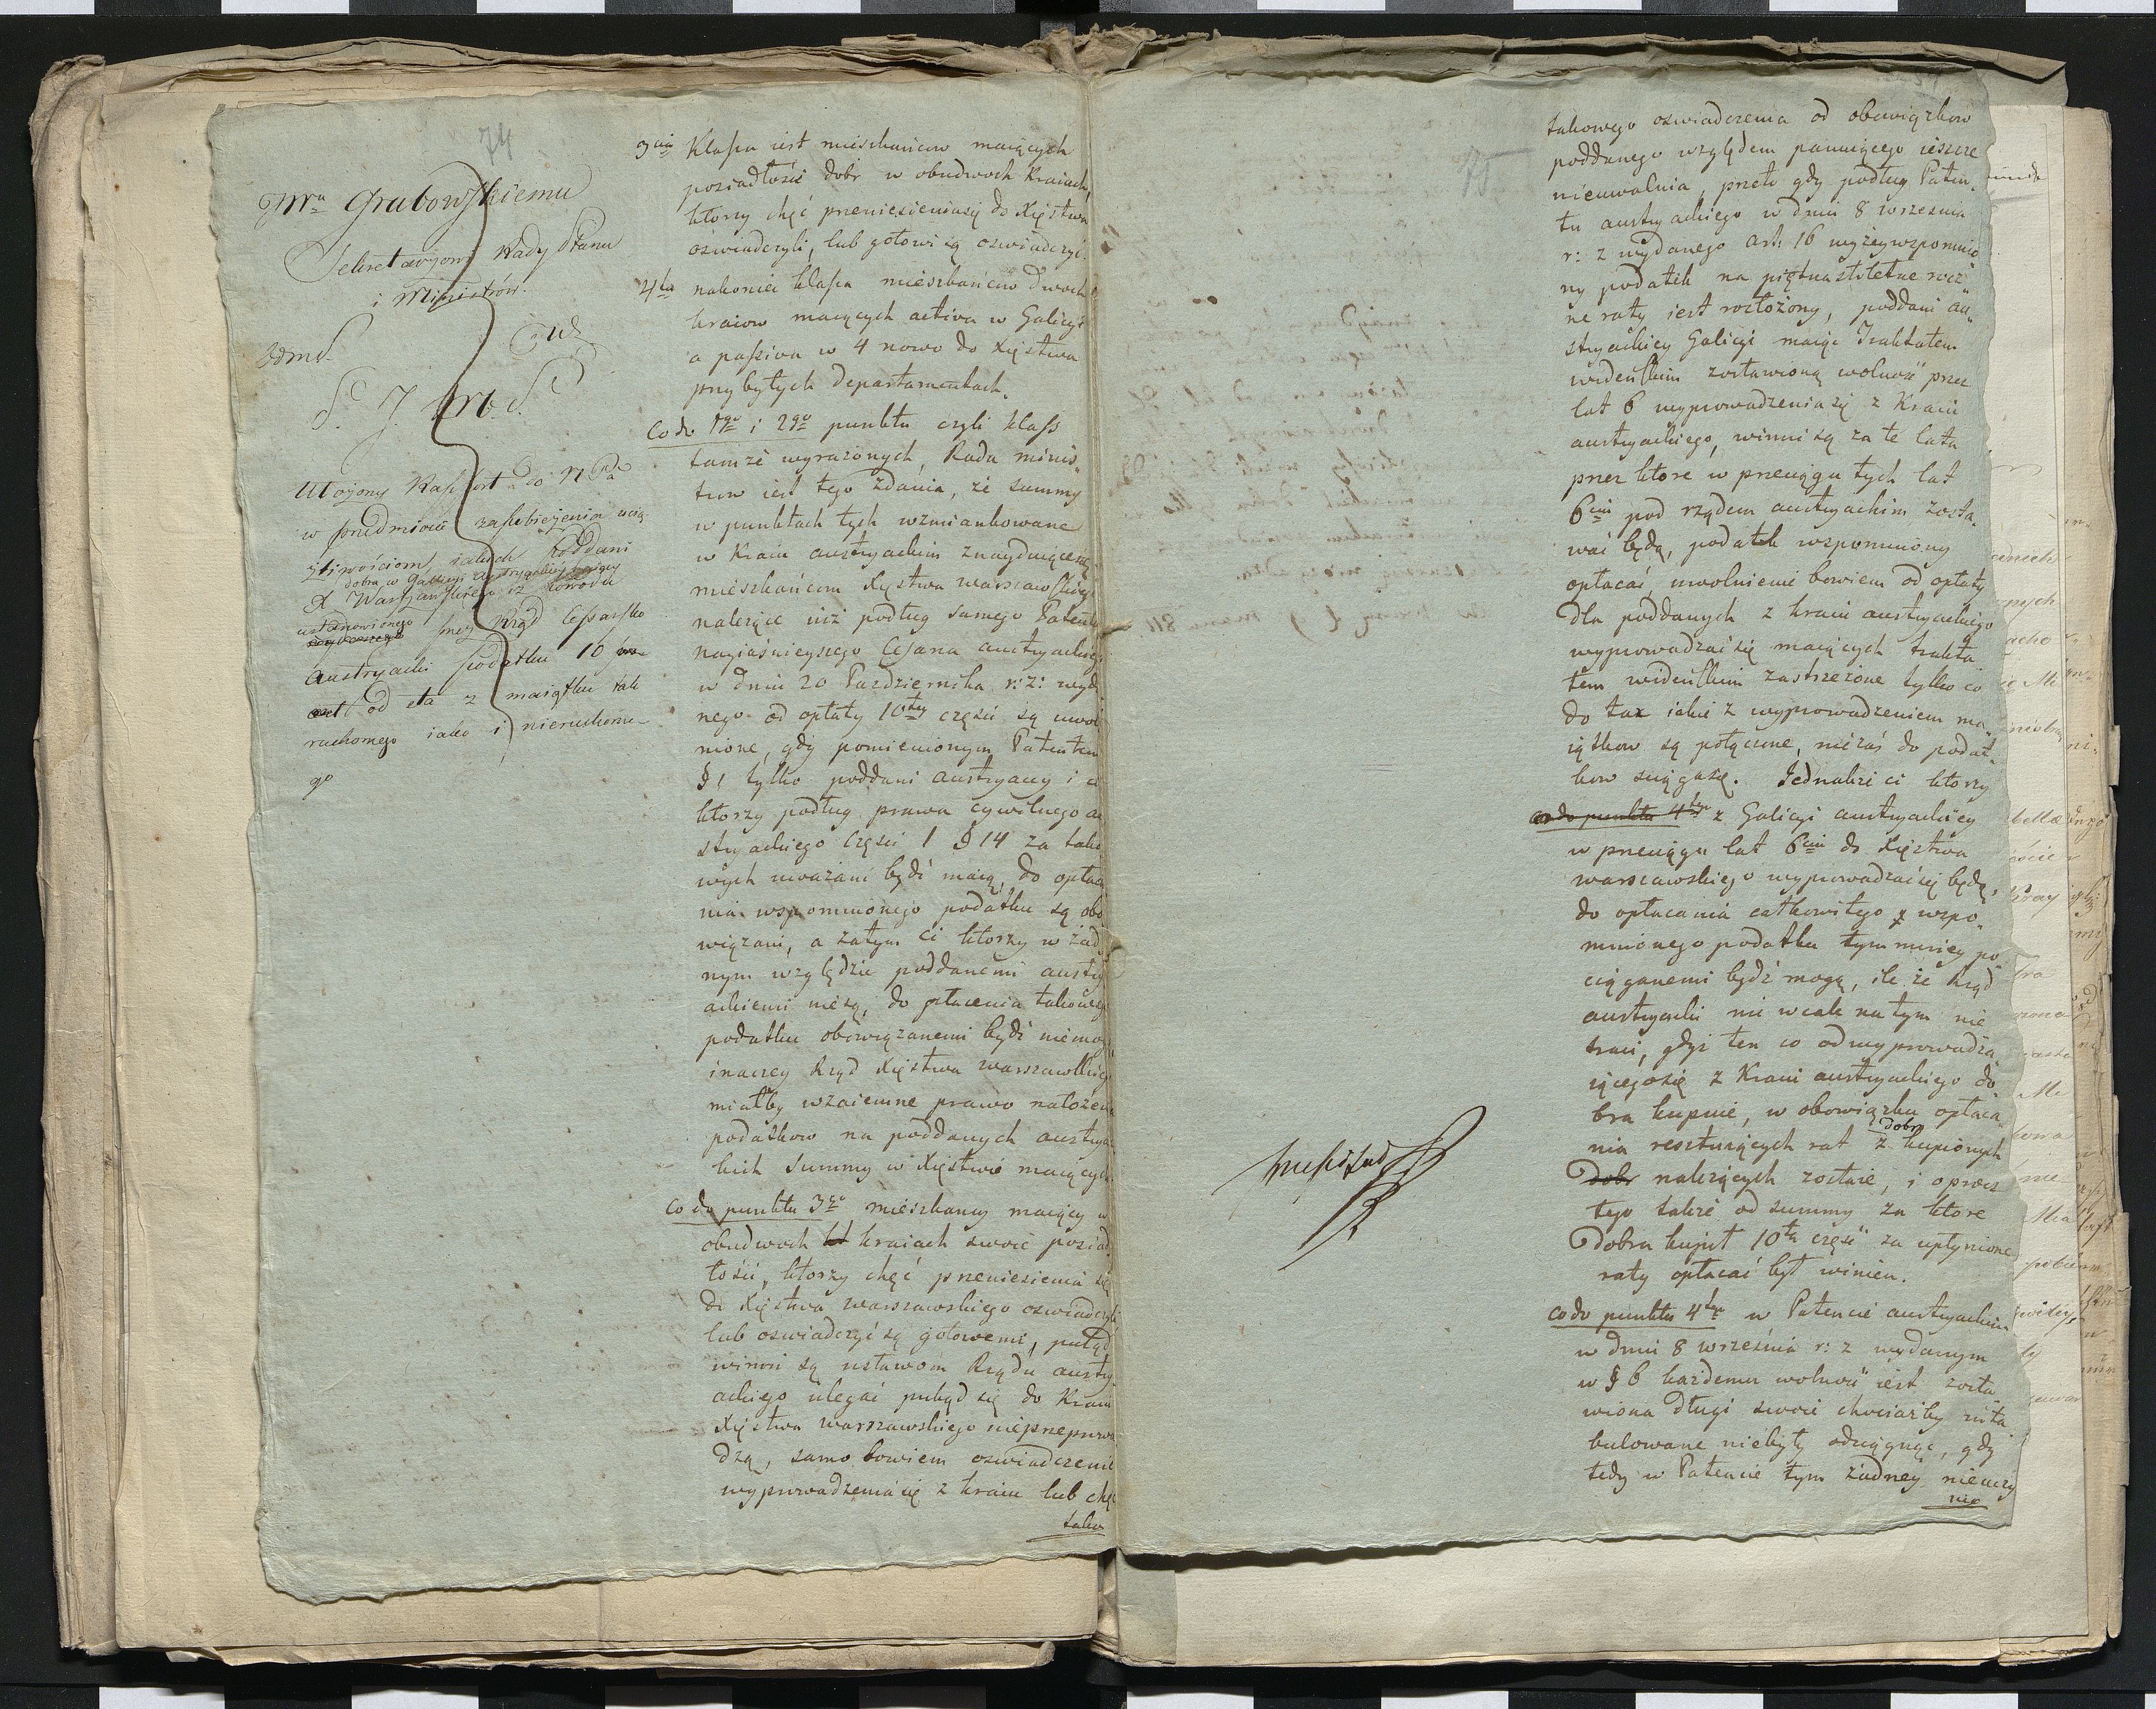 74
JWu Grabowskiemu
Sekretarzowi Rady Stanu
i Ministrów.
S. J. W.
Ułożony Rapport do N Pa
w przedmiocie zapobieżenia ucią
żliwościom iakich Poddani
dobra w Galicyi Austryackiey maiący
X Warszawskiego iż powodu
ustanowionego przez Rząd Cesarsko
Austryacki podatku 10
od sta z maiątku tak
ruchomego iako i nieruchome-
go
3cią Klassa iest mieszkańcow maiących
posiadłości dobr w obudwoch Kraiach,
ktorzy chęć przeniesieniasię do Xięstwa
oswiadczyli, lub gotowi są oswiadczyć.
4ta nakoniec klassa mieszkańców dwoch
kraiow maiących activa w Galicyi
a passiva w 4 nowo do Xięstwa
przybyłych departamentach.
Co do 1go i 2go punktu czyli klass
tamże wyrażonych, Rada minis-
trow iest tego zdania, że summy
w punktach tych wzmiankowane
w Kraiu austryackim znayduiącesię
mieszkańcom Xięstwa warszawskiego
należące iuż podług samego Patentu
nayiaśnieyszego Cesarza austryackiego
w dniu 20 Pazdziernika r: z: wyda
nego od opłaty 10tey części są uwol
nione, gdy pomienionym Patentem
§ 1 tylko poddani austryaccy i ci
ktorzy podług prawa cywilnego au
stryackiego Części 1 § 14 za tako
wych uważani bydź maią, do opłaca
nia wspomnionego podatku są obo
wiązani, a zatym ci ktorzy w żad
nym względzie poddanemi austry
ackiemi niesą, do płacenia takowego
podatku obowiązanemi bydź niemogą
inaczey Rząd Xięstwa warszawskiego
miałby wzaiemne prawo nałożenia
podatkow na poddanych austryac
kich summy w Xięstwie maiących
Co do punktu 3go mieszkańcy maiący w
obudwoch kraiach swoie posiad
łości, ktorzy chęć przeniesienia się
do Xięstwa warszawskiego oswiadczyli
lub oswiadczyć są gotowemi, potąd
winni są ustawom Rządu austry
ackiego ulegać pokąd się do Kraiu
Xięstwa warszawskiego nieprzeprowa
dzą, samo bowiem oswiadczenie
wyprowadzeniasię z kraiu lub chęć
tako
75
takowego oswiadczenia od obowiązkow
poddanego względem panuiącego ieszcze
nieuwalnia, przeto gdy podług Paten-
tu austryackiego w dniu 8 wrzesnia
r: z wydanego art: 16 wyżeywspomnio
ny podatek na piętnastoletne rocz
ne raty iest rozłożony, poddani au
stryackiey Galicyi maiąc Traktatem
wideńskim zostawioną wolność przez
lat 6 wyprowadzeniasię z Kraiu
austryackiego, winni są za te lata
przez ktore w przeciągu tych lat
6ciu pod rządem austryackim zosta-
wać będą, podatek wspomniony
opłacać, uwolnienie bowiem od opłaty
dla poddanych z kraiu austryackiego
wyprowadzać się maiących trakta
tem wideńskim zastrzeżone tylko co
do tax iakie z wyprowadzeniem ma
iątkow są połączone, nie zaś do podat-
kow sciągasię. Jednakże ci ktorzy
co do punktu 4tego z Galicyi austryackiey
w przeciągu lat 6ciu do Xięstwa
warszawskiego wyprowadzać się będą,
do opłacania całkowitego z wspo-
mnionego podatku tym mniey po
ciąganemi bydź mogą, ile że Rząd
austryacki nic wcale na tym nie
traci, gdyż ten co odwyprowadza
iącegosię z Kraiu austryackiego do
bra kupuie, w obowiązku opłaca-
nia resztuiących rat z dobr kupionych
dobr należących zostaie, i oprocz
tego także od summy za ktore
Dobra kupił 10tą część za upłynione
raty opłacać był winien.
co do punktu 4tego w Patencie austryackim
w dniu 8 września r: z wydanym
w § 6 każdemu wolność iest zosta
wiona długi swoie chociażby inta
bulowane niebyły odciągnąć, gdy
tedy w Patencie tym żadney nieuczy
nio